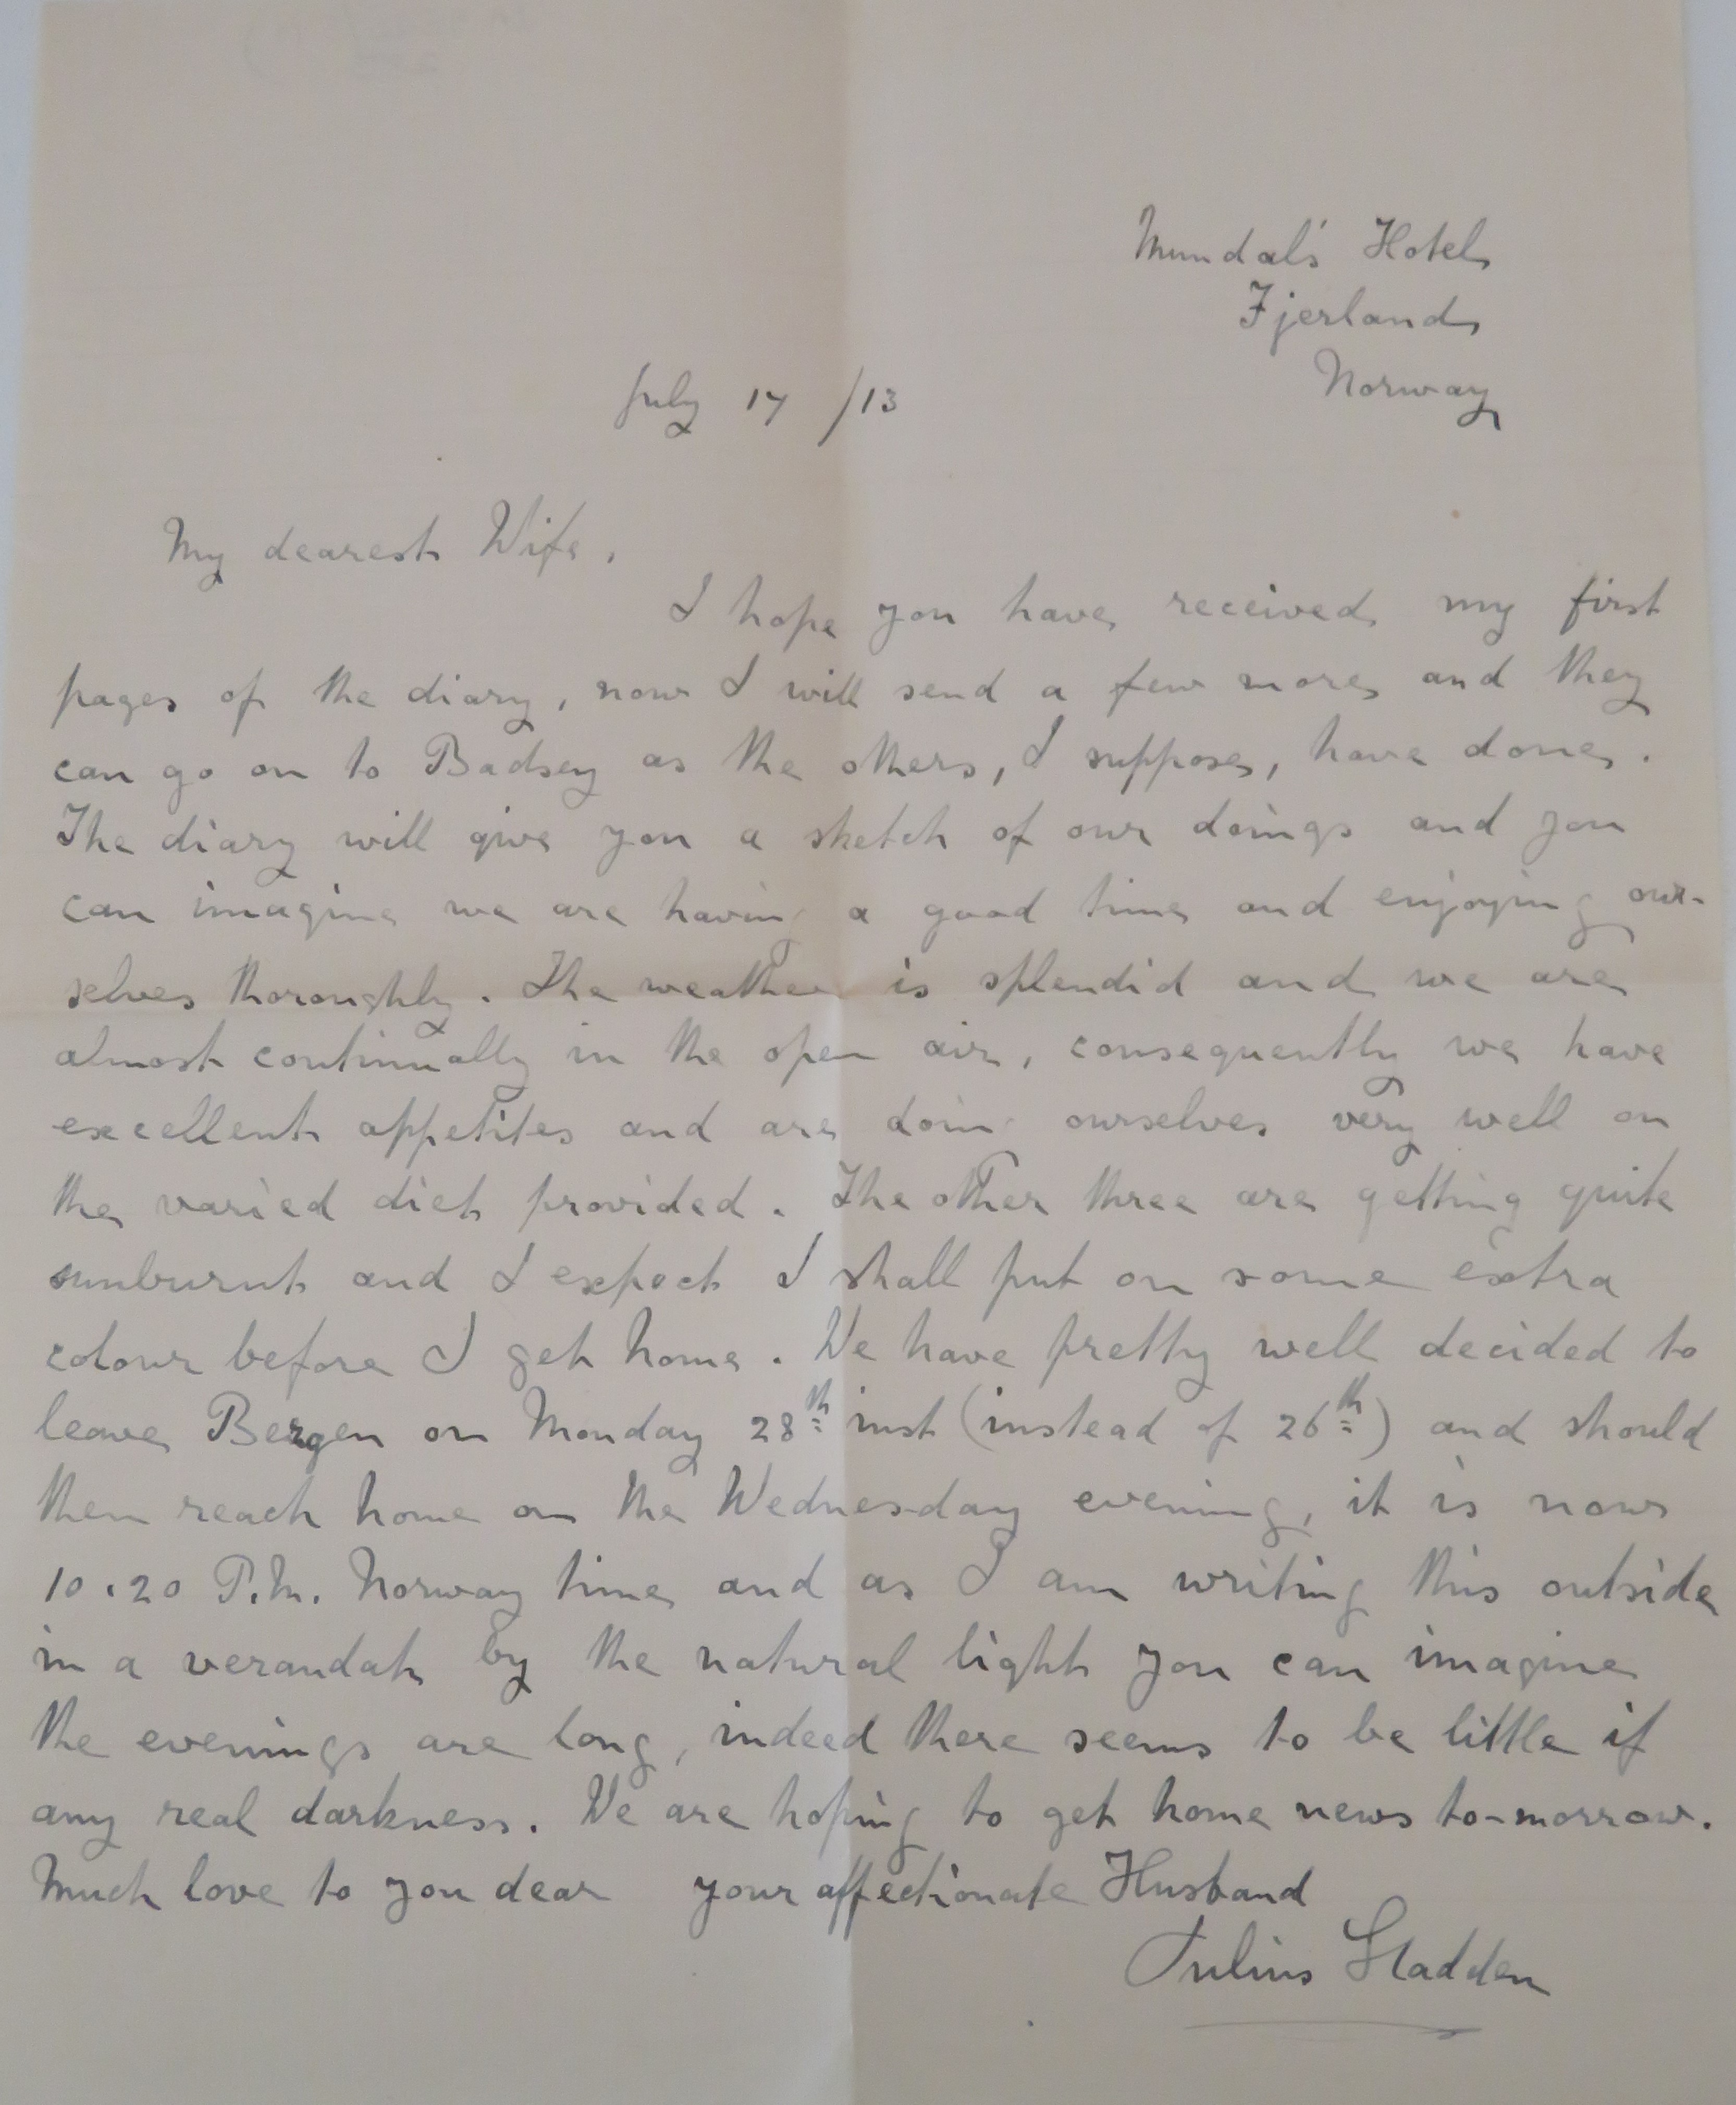 Mundal's Hotel
Fjerland
Norway
July 17 /13
My dearest Wife,
I hope you have received my first
pages of the diary, now I will send a few more and they
can go on to Badsey as the others, I suppose, have done.
The diary will give you a sketch of our doings and you
can imagine we are having a good time and enjoying our-
selves thoroughly. The weather is splendid and we are
almost continually in the open air, consequently we have
excellent appetites and are doing ourselves very well on
the varied diet provided. The other three are getting quite
sunburnt and I expect I shall put on some extra
colour before I get home. We have pretty well decided to
leave Bergen on Monday 28th inst (instead of 26th) and should
then reach home on the Wednesday evening, it is now
10.20 P.M. Norway time and as I am writing this outside
in a verandah by the natural light you can imagine
the evenings are long, indeed there seems to be little if
any real darkness. We are hoping to get home news to-morrow.
Much love to you dear your affectionate Husband
Julius Sladden